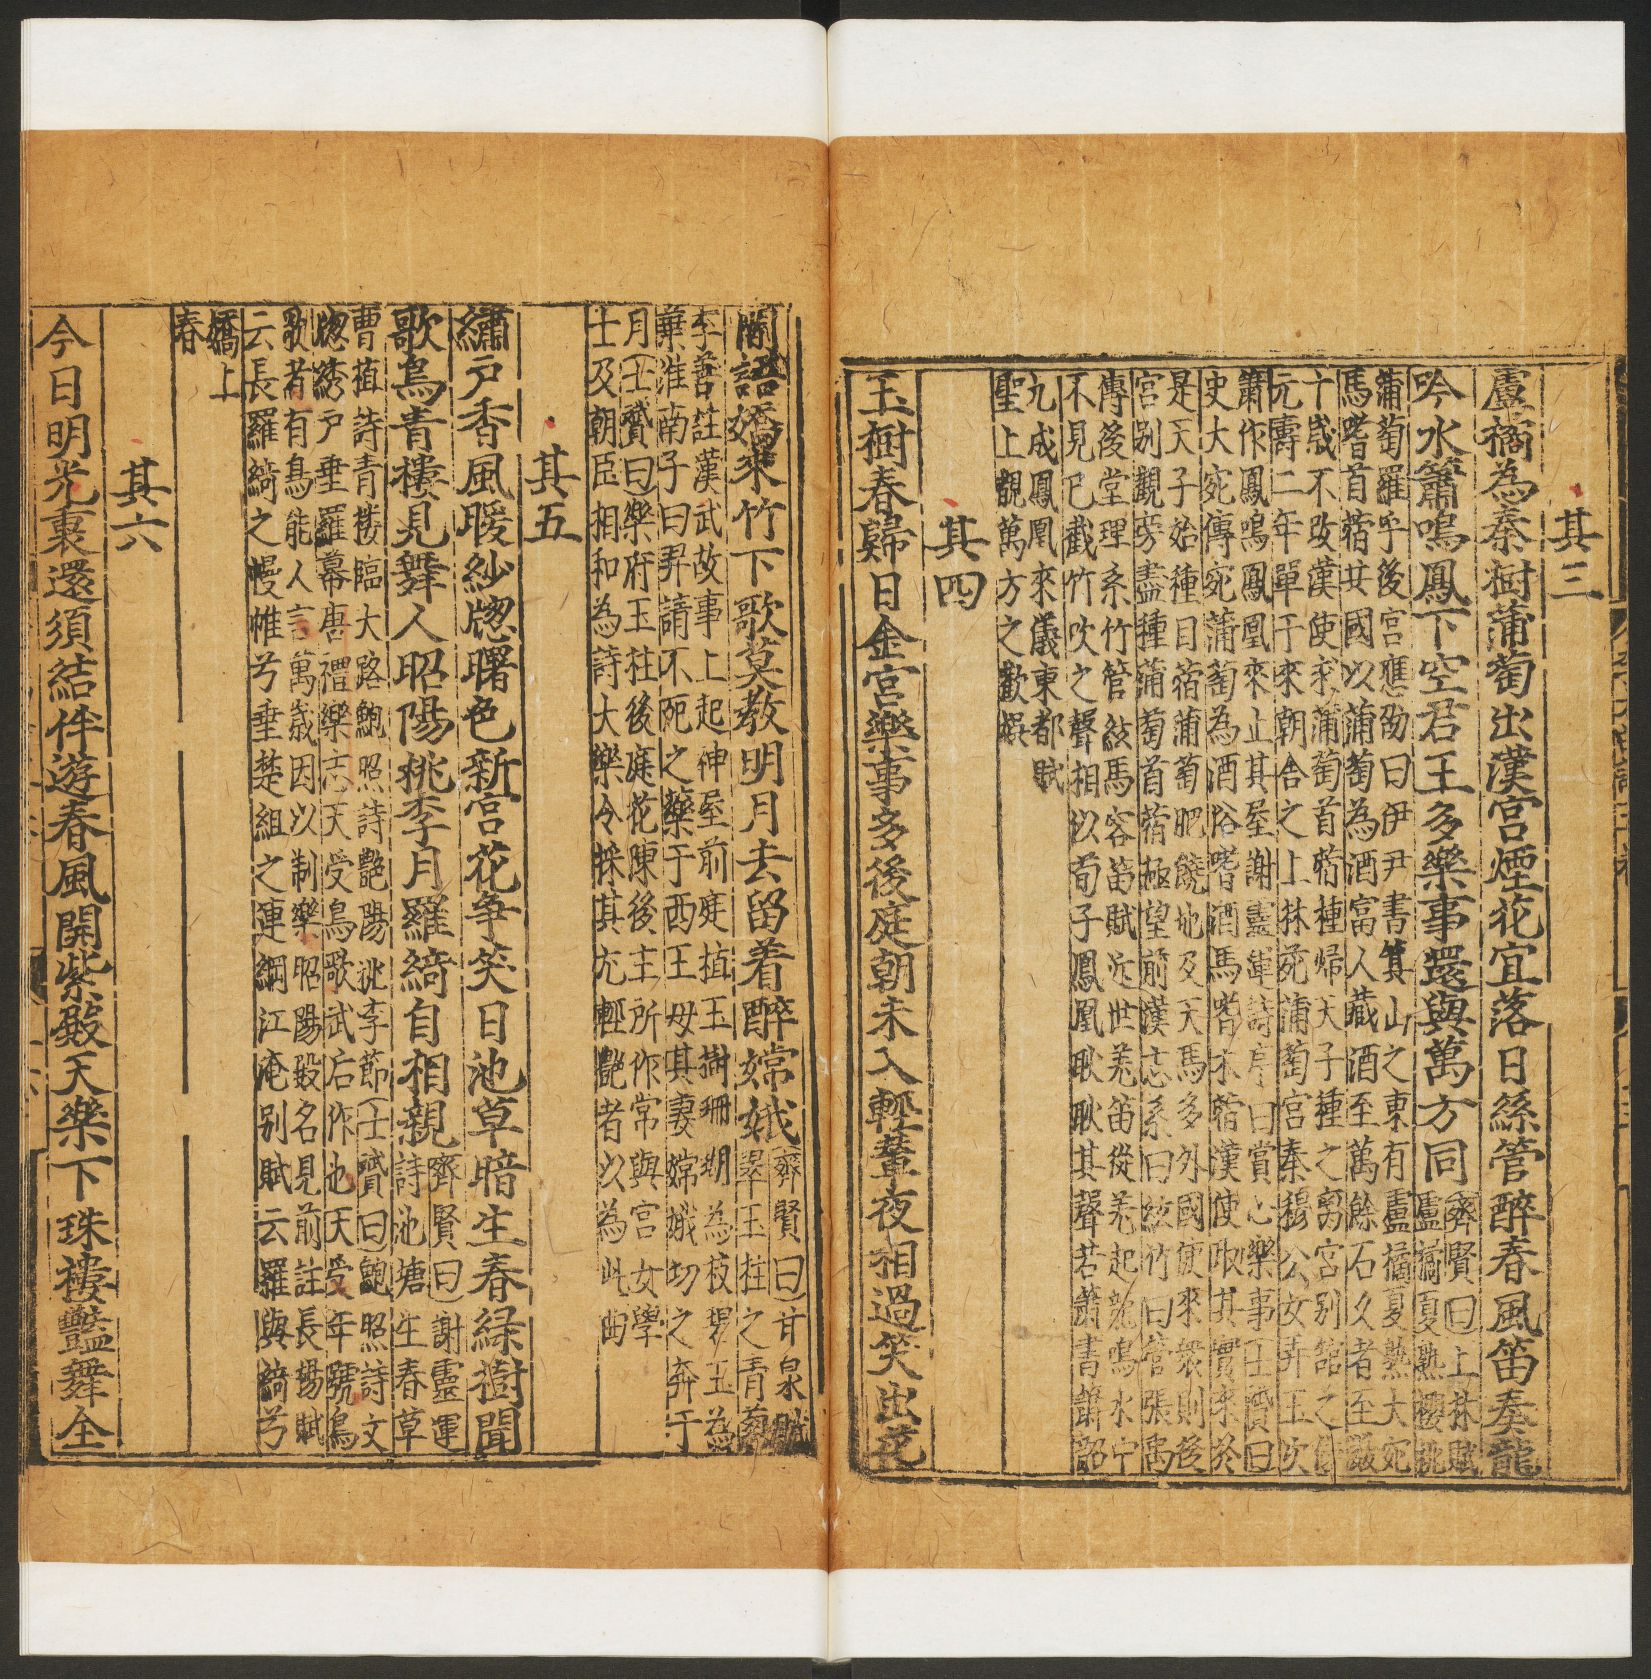 其三
盧橘為秦樹蒲萄出漢宮煙花宜落日絲管醉春風笛奏龍
吟水簫鳴鳳下空君王多樂事還與萬方同
齊賢曰上林賦
盧橘夏熟櫻桃
蒲萄羅乎後宮應劭曰伊尹書箕山之東有盧橘夏熟大宛
馬嗜首蓿其國以蒲萄為酒富人藏酒至萬餘石久者至數
十歲不敗漢使求蒲萄首蓿種歸天子種之离宮别館之傍
元壽二年單于來朝舍之上林苑蒲萄宮秦穆公女弄玉次
簫作鳳鳴鳳凰來止其屋謝靈運詩序曰賞心樂事士贇曰
史大宛傳宛蒲萄為酒俗嗜酒馬嗜木蓿漢使取其實來於
是天子始種目蓿蒲萄肥饒地及天馬多外國使來衆則後
宮别觀旁盡種蒲萄首蓿極望前漢志系曰絃竹曰管張禹
傳後堂理系竹管絃馬容笛賦近世羌笛從羌起龍鳴水中
不見巳截竹吹之聲相似荀子鳳凰耿耿其聲若簫書簫韶
九成鳳凰來儀東都賦
聖上覩萬方之歡娛
其四
玉樹春歸日金宮樂事多後庭朝未入輕輦夜相過笑出花
間語嬌來竹下歌莫教明月去留着醉嫦娥
齊賢曰甘泉賦
翠玉柱之青葱
李善註漢武故事上起神屋前庭植玉樹珊瑚為枝碧玉為
葉淮南子曰羿請不死之藥于西王母其妻嫦娥切之奔于
月士贇曰樂府玉柱後庭花陳後主所作常與宮女學
士及朝臣相和為詩大樂令採其尤輕艷者以為此曲
其五
繡戶香風暖紗牕曙色新宮花爭笑日池草暗生春緑樹聞
歌鳥青樓見舞人昭陽桃李月羅綺自相親
齊賢曰謝靈運
詩池塘生春草
曹植詩青樓臨大路鮑照詩艷陽桃李節士贇曰鮑照詩文
牕綉戶垂羅幕唐禮樂志天受鳥歌武后作也天受年號鳥
歌者有鳥能人言萬歲因以制樂昭陽殿名見前註長楊賦
云長羅綺之幔帷兮垂楚組之連綱江淹别賦云羅與綺兮
嬌上
春
其六
今日明光裏還須結伴遊春風開紫殿天樂下珠樓豔舞全